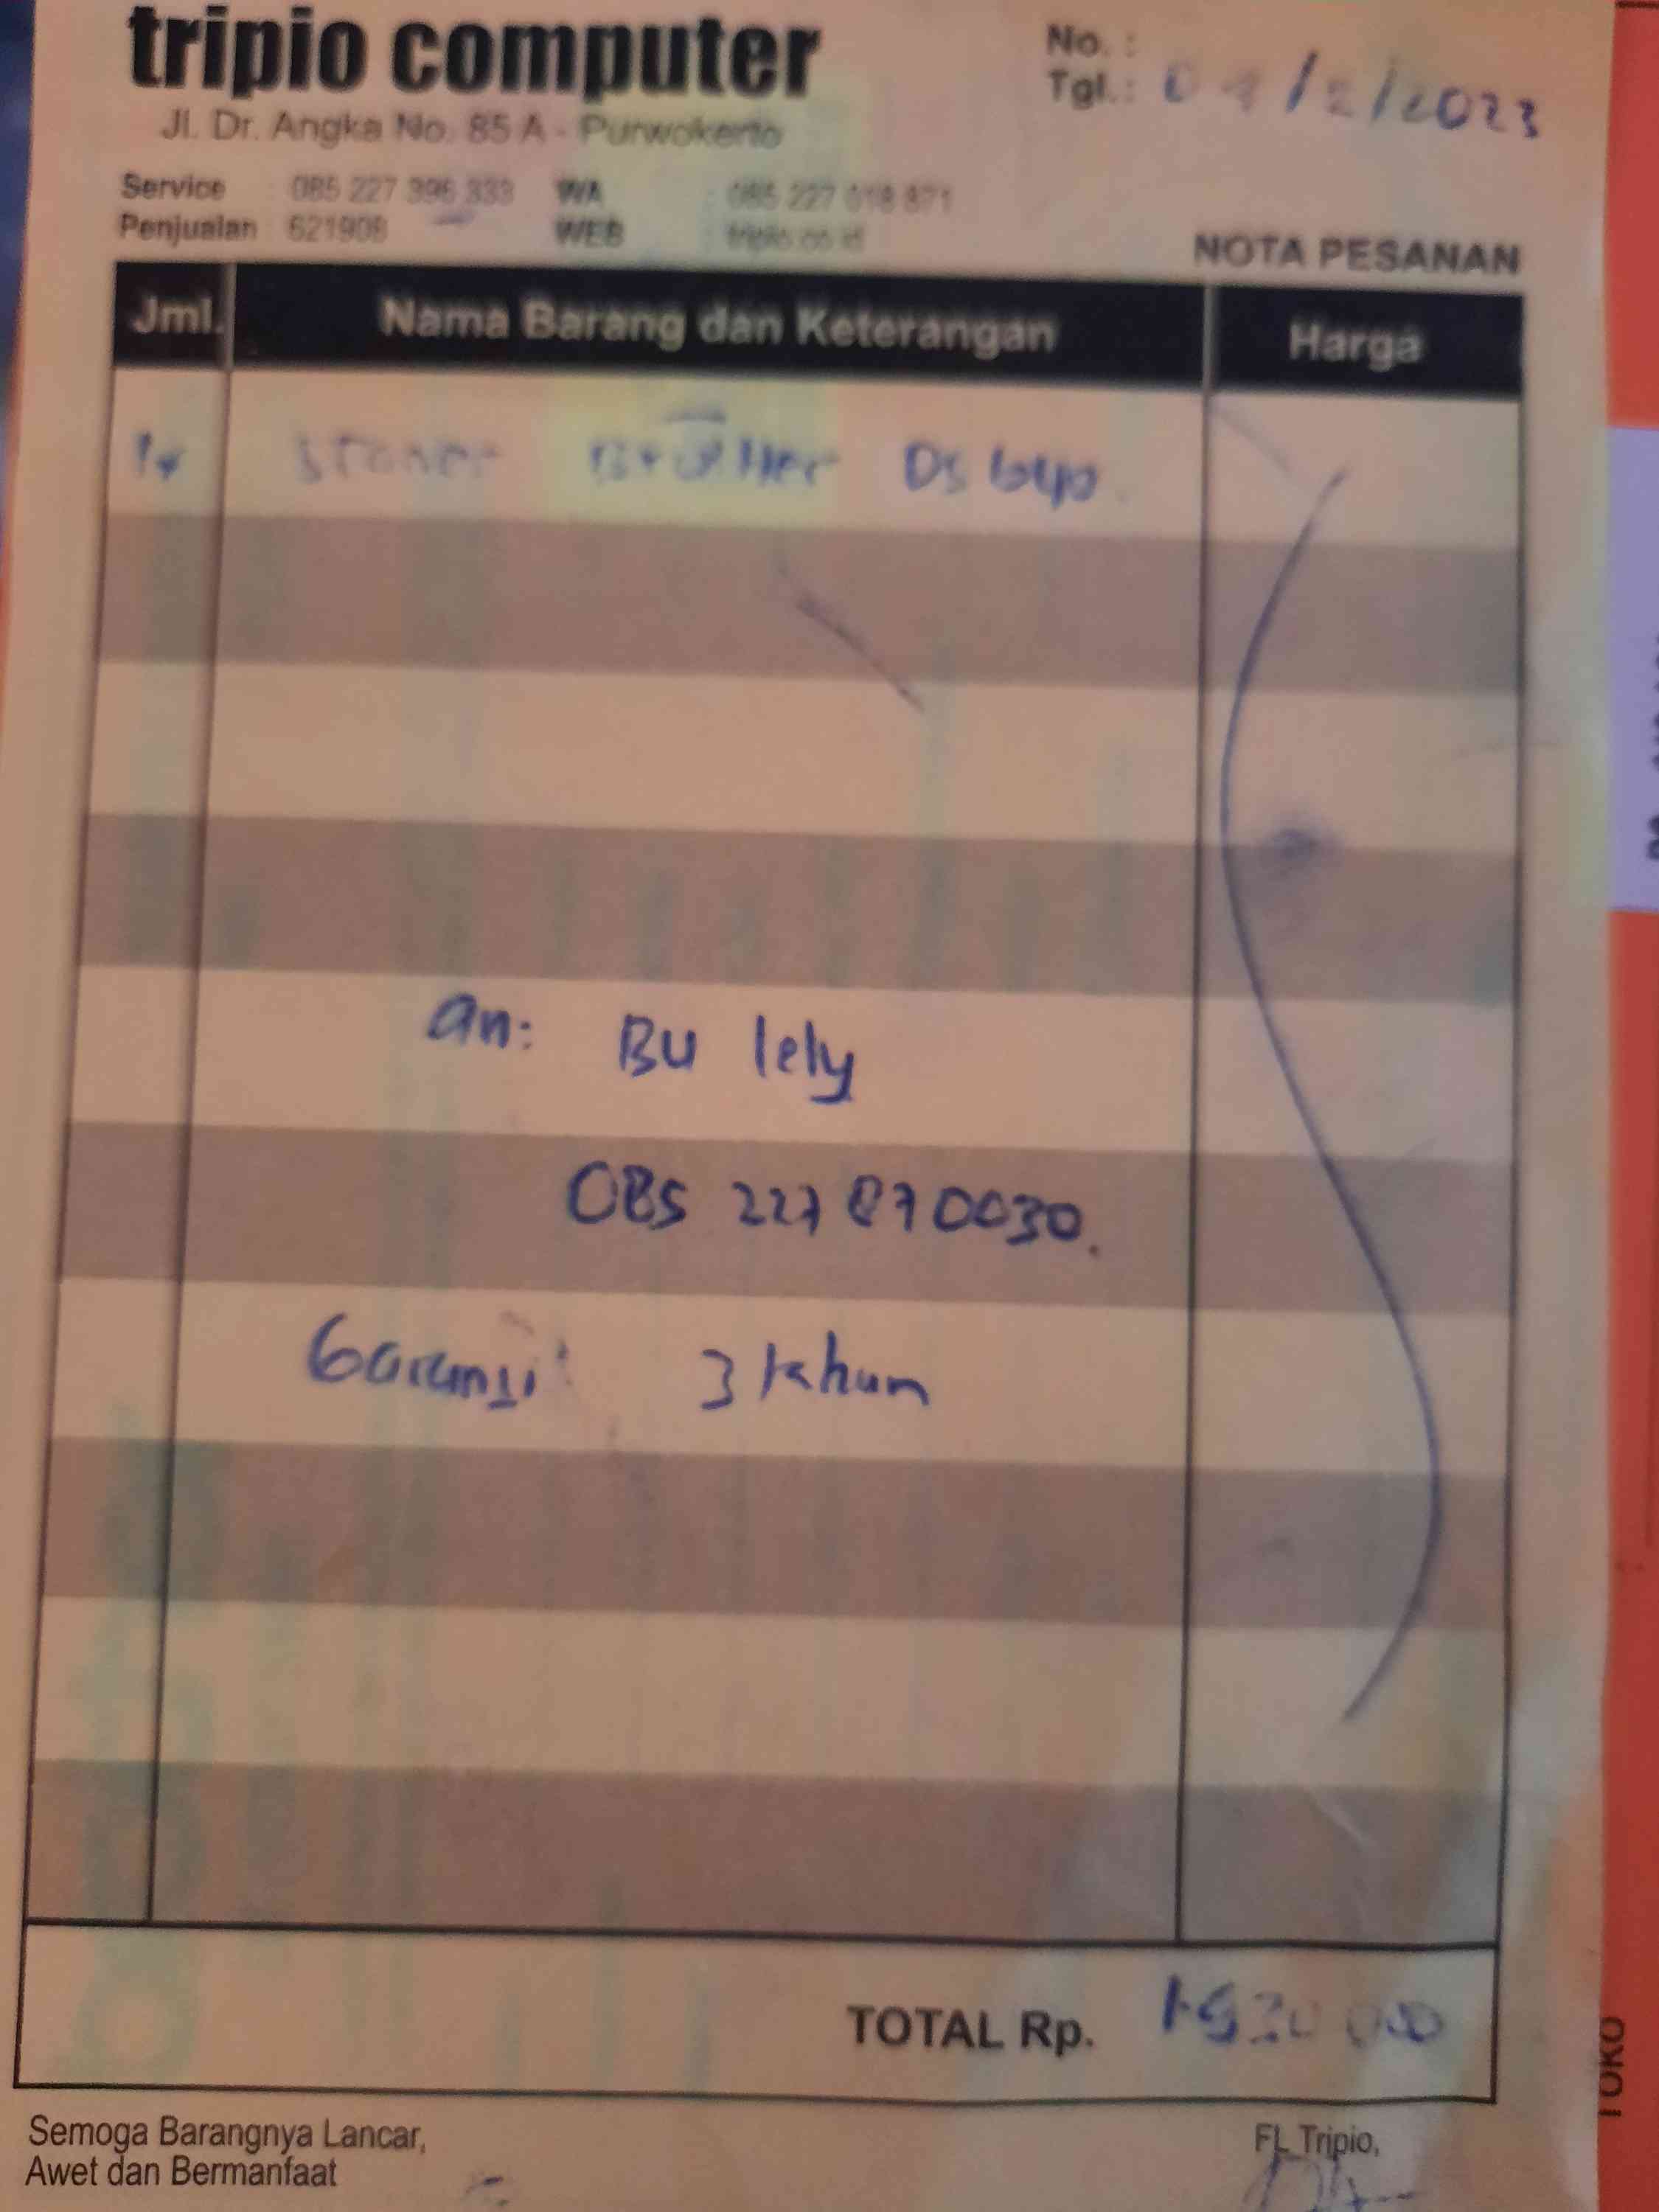 tripio computer
Jl. Dr. Angka No. 85 A - Purwokerto
No. :
Tgl. : /2/2023
Service : 085 227 396 333 WA : 085 227 018 871
Penjualan : 621908 WEB : tripio.co.id
NOTA PESANAN
Jml. Nama Barang dan Keterangan Harga
Brother DS 640
an: Bu lely
085 227 870030.
Garansi 3 tahun
TOTAL Rp.
Semoga Barangnya Lancar,
Awet dan Bermanfaat
FL Tripio,
TOKO